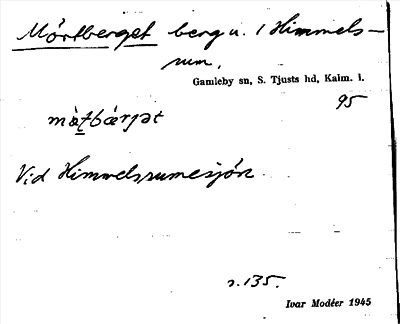 Mörtberget berg u. 1 Himmels-
rum,
Gamleby sn, S. Tjusts hd, Kalm. l.
95
mö̀t̠bærjət
Vid Himmelsrumesjön
s. 135.
Ivar Modéer 1945